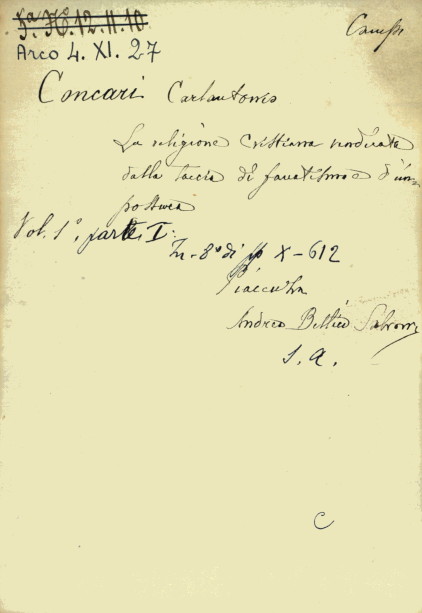 5ª H. 12. II. 10
Arco 4. XI. 27
Concari Carlantonio
La religione Cristiana vendicata
dalla taccia di fanatismo e d'im-
postura
Vol. 1º, parte I:
In-8º di pp X-612
Piacenza
Andrea Bellico Salvoni
S. a.
C